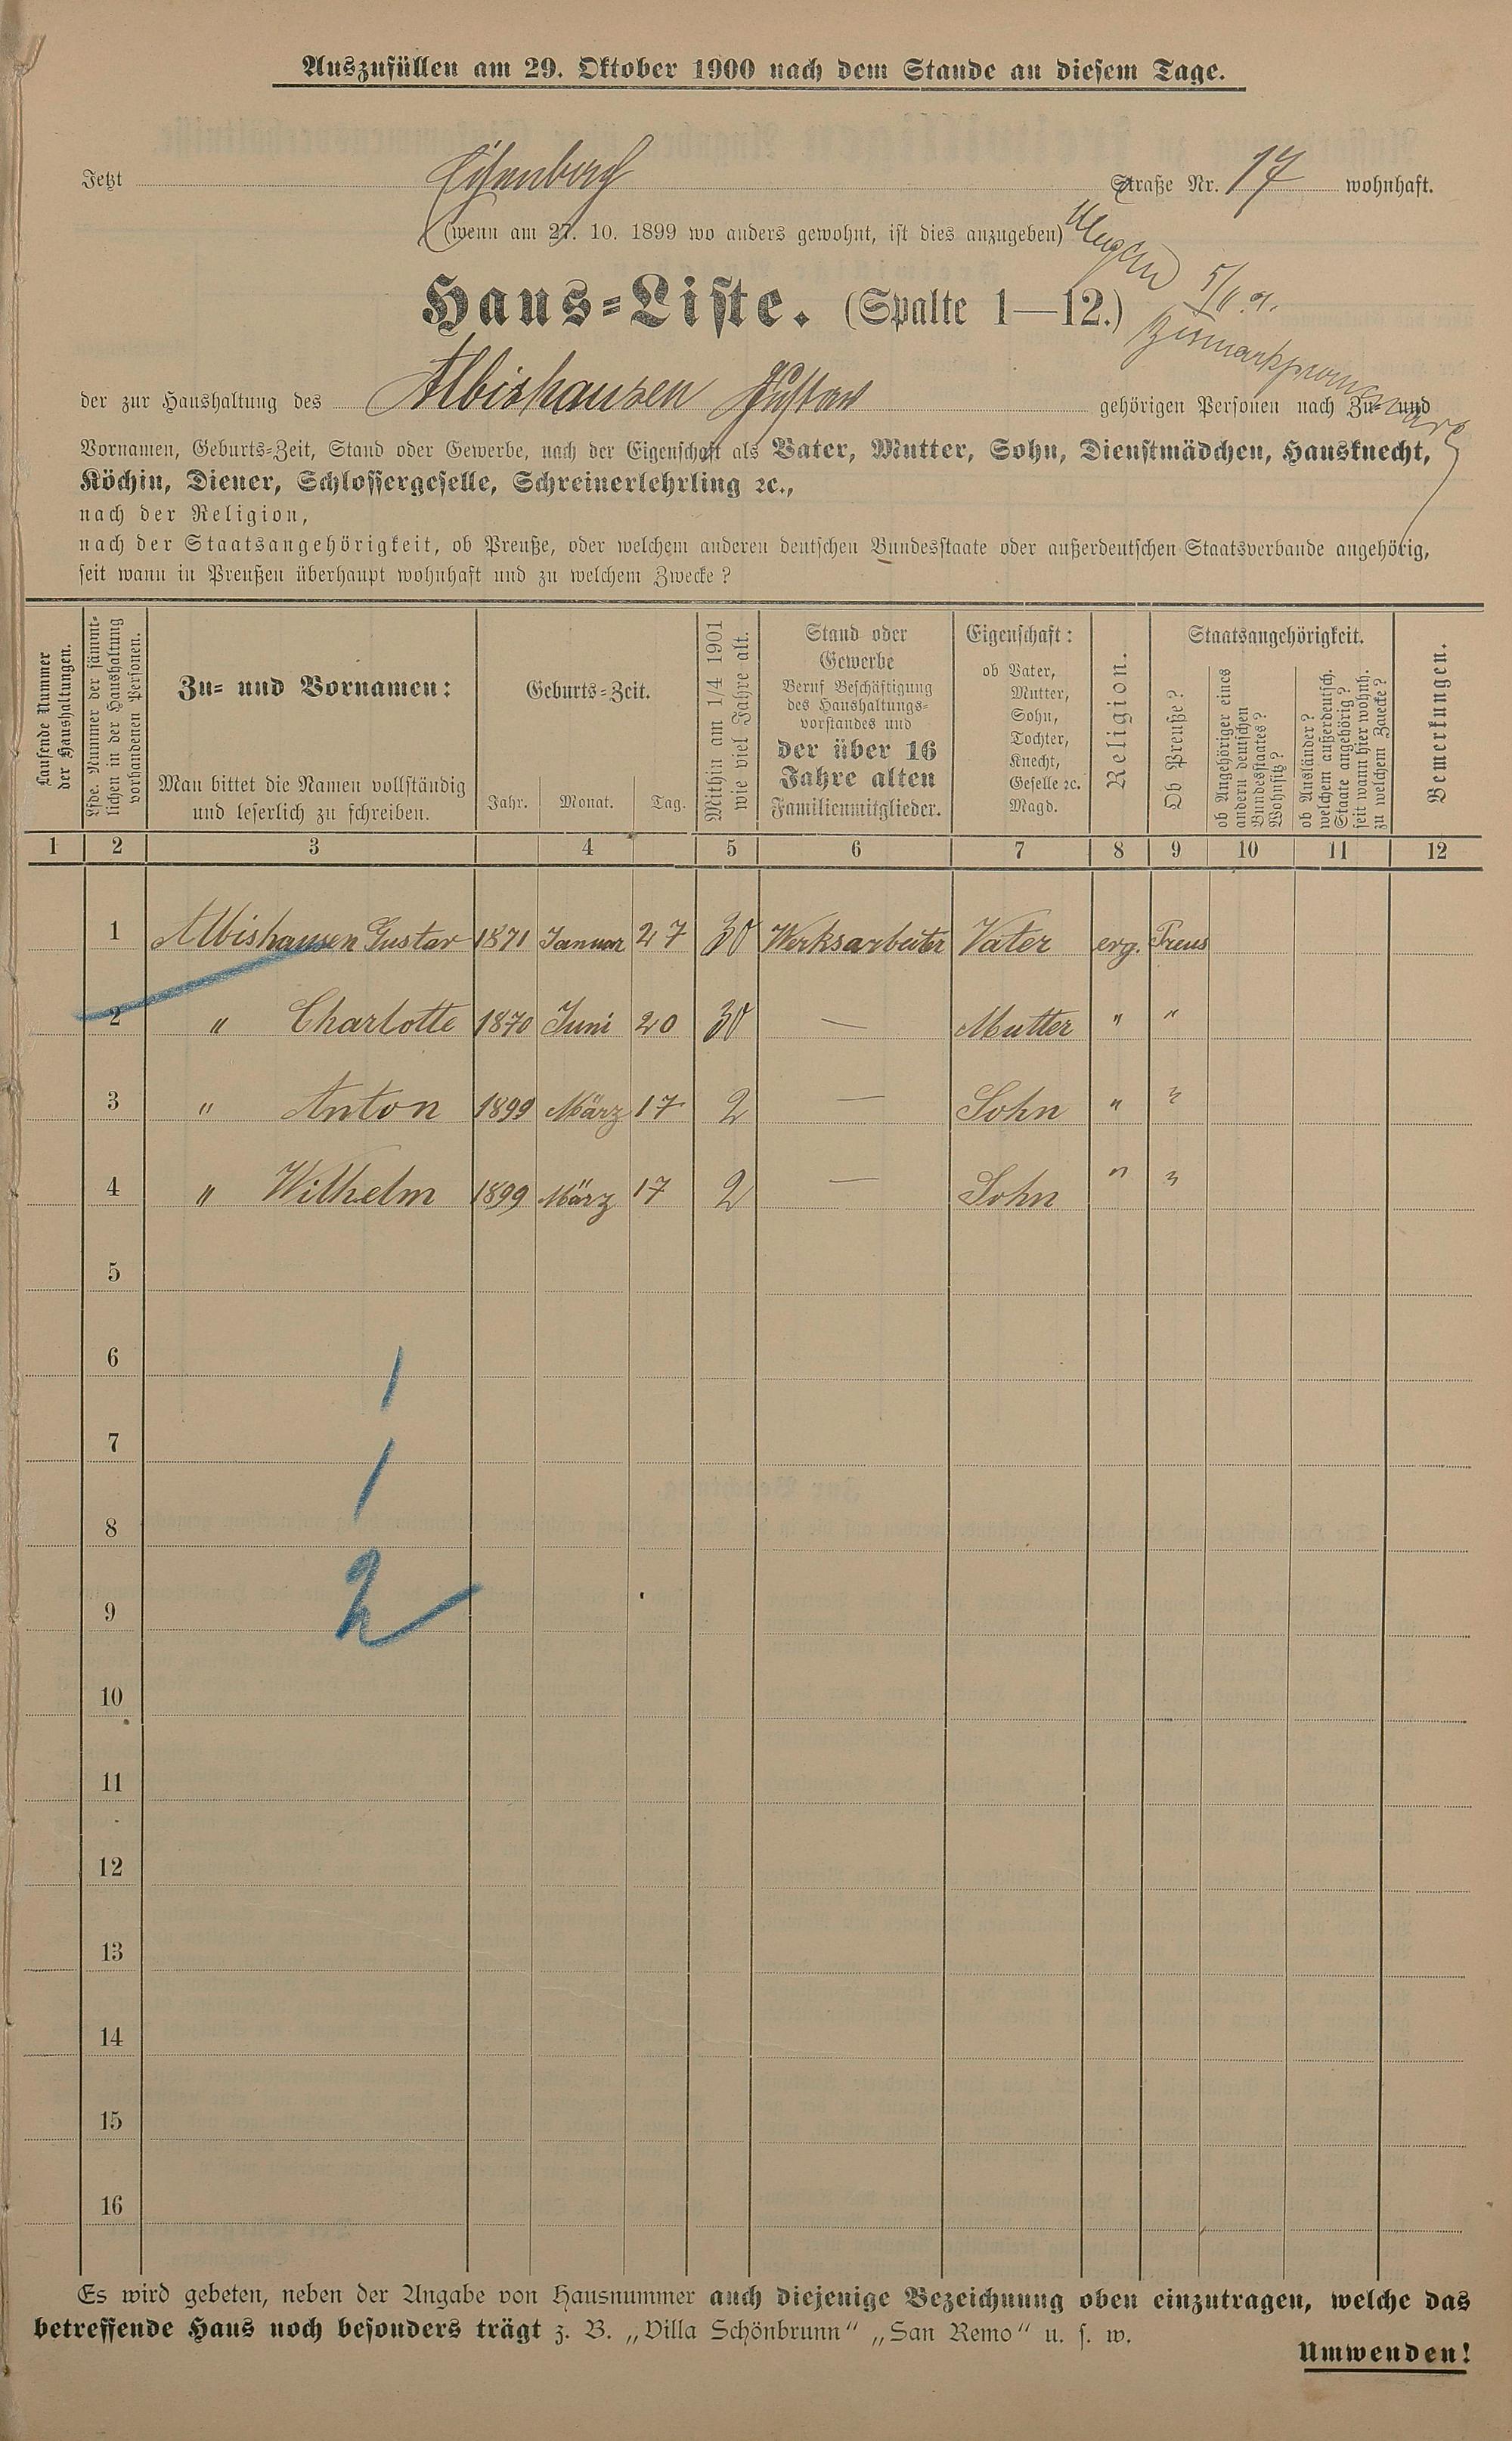 Auszufüllen am 29. Oktober 1900 nach dem Stande an diesem Tage.
Jetzt Eisenberg Straße Nr. 17 wohnhaft.
(wenn am 27. 10. 1899 wo anders gewohnt, ist dies anzugeben)
Haus-Liste. (Spalte 1—12.)
der zur Haushaltung des Albishausen Gustav gehörigen Personen nach Zu- und
Vornamen, Geburts-Zeit, Stand oder Gewerbe, nach der Eigenschaft als Vater, Mutter, Sohn, Dienstmädchen, Hausknecht,
Köchin, Diener, Schlossergeselle, Schreinerlehrling ꝛc.,
nach der Religion,
nach der Staatsangehörigkeit, ob Preuße, oder welchem anderen deutschen Bundesstaate oder außerdeutschen Staatsverbande angehörig,
seit wann in Preußen überhaupt wohnhaft und zu welchem Zwecke?
Laufende Nummer
der Haushaltungen.
Lfde. Nummer der sämmt-
lichen in der Haushaltung
vorhandenen Personen.
Zu- und Vornamen:
Man bittet die Namen vollständig
und leserlich zu schreiben.
Geburts-Zeit.
Jahr. Monat. Tag.
Mithin am 1/4 1901
wie viel Jahre alt.
Stand oder
Gewerbe
Beruf Beschäftigung
des Haushaltungs-
vorstandes und
der über 16
Jahre alten
Familienmitglieder.
Eigenschaft:
ob Vater,
Mutter,
Sohn,
Tochter,
Knecht,
Geselle ꝛc.
Magd.
Religion.
Staatsangehörigkeit.
Ob Preuße?
ob Angehöriger eines
andern deutschen
Bundesstaates?
Wohnsitz?
ob Ausländer?
welchem außerdeutsch.
Staate angehörig?
seit wann hier wohnh.
zu welchem Zwecke?
Bemerkungen.
1 2 3 4 5 6 7 8 9 10 11 12
1 Albishausen Gustav 1871 Januar 27 30 Werksarbeiter Vater evg. Preus
2 " Charlotte 1870 Juni 20 30 — Mutter " "
3 " Anton 1899 März 17 2 — Sohn " "
4 " Wilhelm 1899 März 17 2 — Sohn " "
5
6
7
8
9
10
11
12
13
14
15
16
1
1
2
Es wird gebeten, neben der Angabe von Hausnummer auch diejenige Bezeichnung oben einzutragen, welche das
betreffende Haus noch besonders trägt z. B. „Villa Schönbrunn“ „San Remo“ u. s. w.
Umwenden!